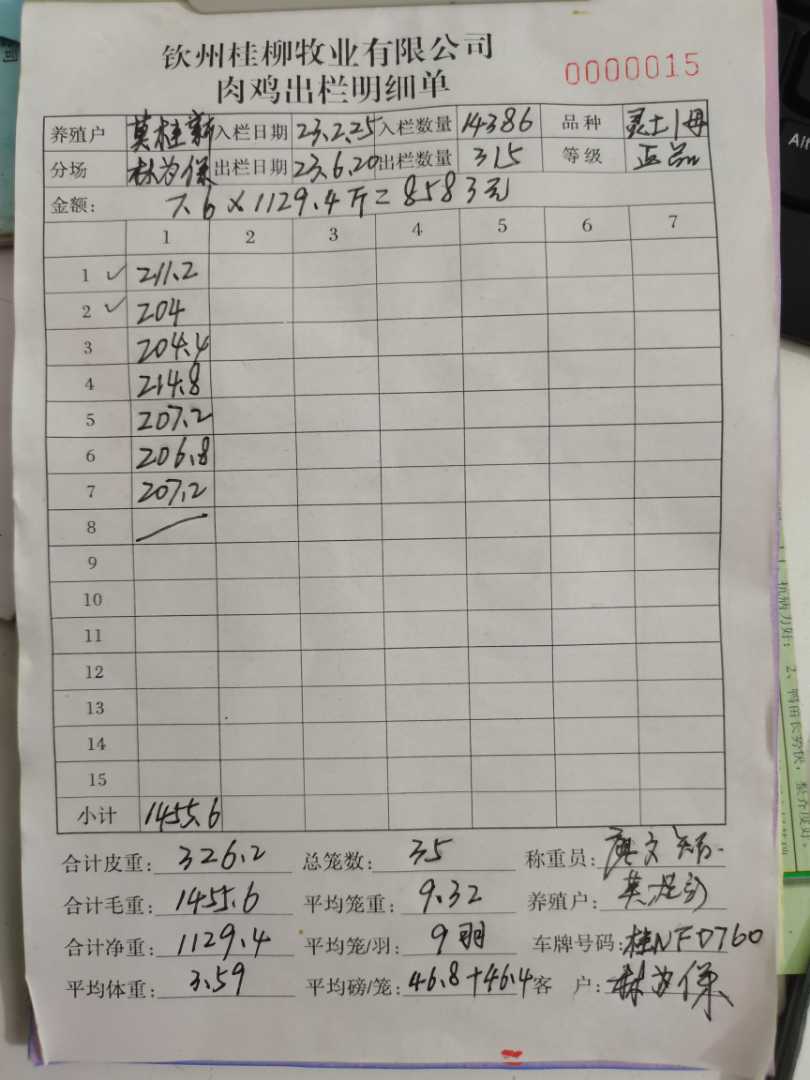 钦州桂柳牧业有限公司
肉鸡出栏明细单
0000015
养殖户 莫桂新 入栏日期 23.2.25 入栏数量 14386 品种 灵土1母
分场 林为保 出栏日期 23.6.20 出栏数量 315 等级 正品
金额: 7.6×1129.4斤=8583元
1 2 3 4 5 6 7
1 ✓ 211.2
2 ✓ 204
3 204.4
4 214.8
5 207.2
6 206.8
7 207.2
8
9
10
11
12
13
14
15
小计 1455.6
合计皮重: 326.2 总笼数: 35 称重员:
合计毛重: 1455.6 平均笼重: 9.32 养殖户:
合计净重: 1129.4 平均笼/羽: 9羽 车牌号码: 桂NFD760
平均体重: 3.59 平均磅/笼: 46.8+46.4 客 户: 林为保
Alt